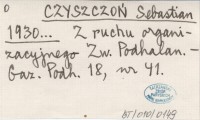 0
CZYSZCZOŃ Sebastian
1930... Z ruchu organi-
zacyjnego Zw. Podhalan. -
Gaz. Podh. 18, nr 41.
BT/010/0149